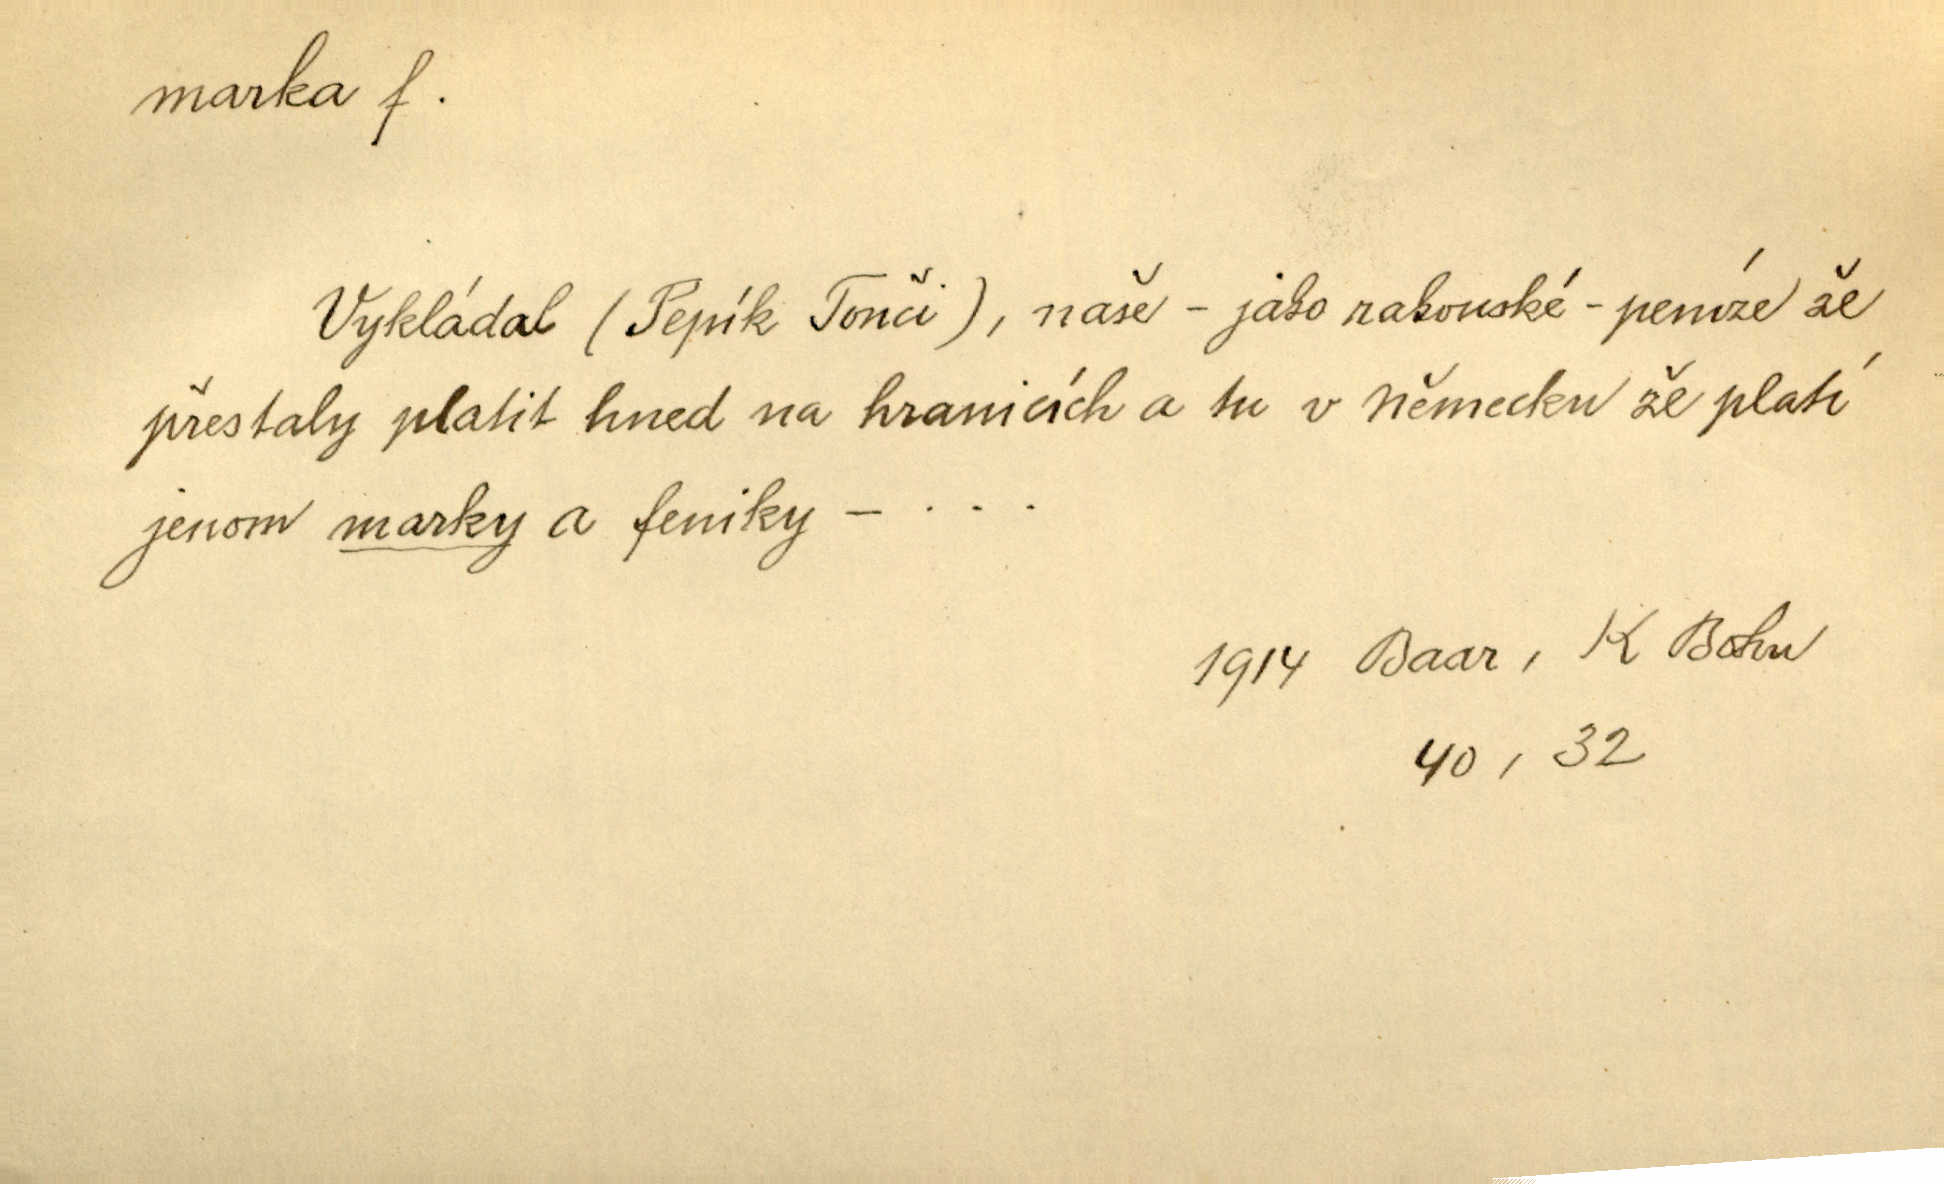 marka f.
Vykládal (Pepík Tonči), naše - jako rakouské - peníze že
přestaly platit hned na hranicích a tu v Německu že platí
jenom marky a feniky - . . .
1914 Baar, K Bohu
40, 32